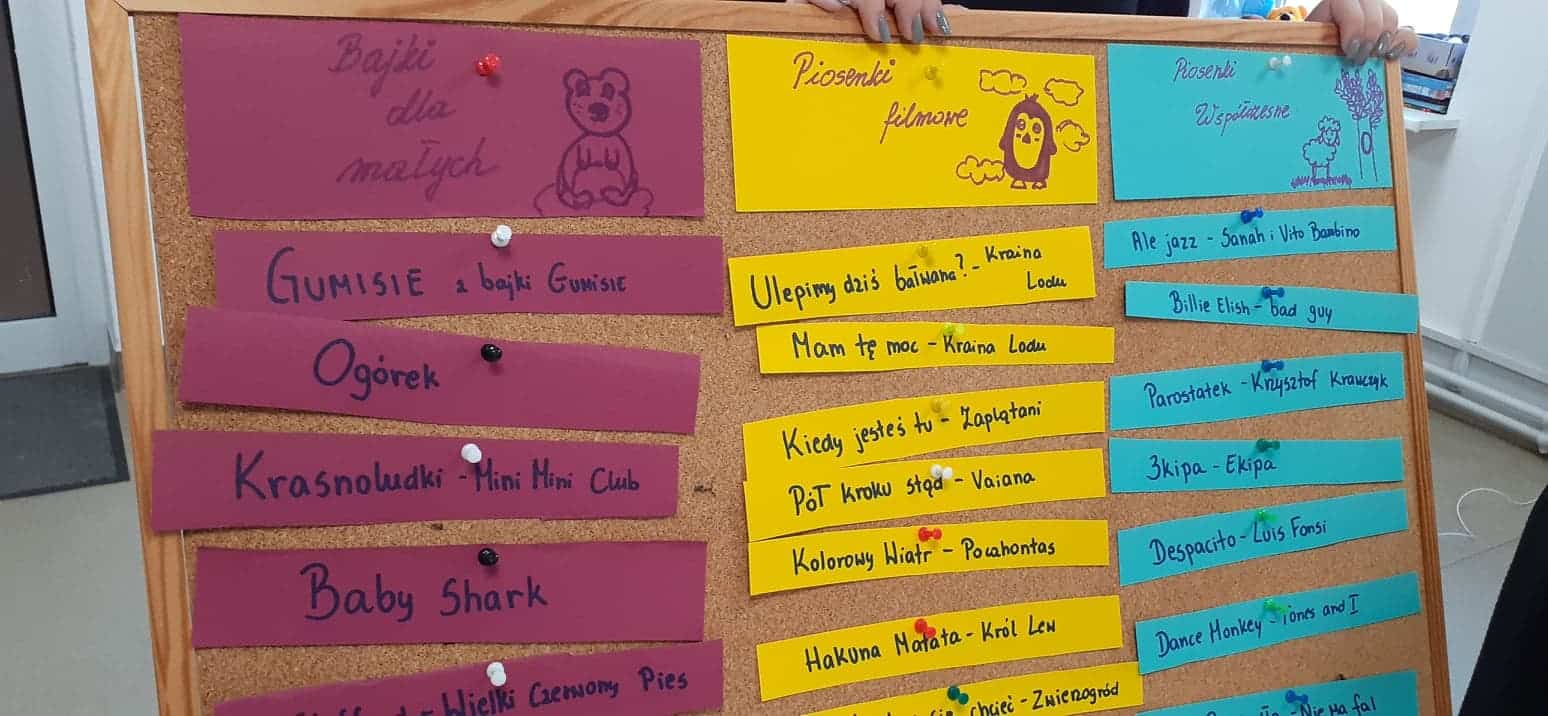 Bajki
dla
małych
GUMISIE z bajki GUMISIE
Ogórek
Krasnoludki - Mini Mini Club
Baby Shark
- Wielki Czerwony Pies
Piosenki
filmowe
Ulepimy dziś bałwana? - Kraina
Lodu
Mam tę moc - Kraina Lodu
Kiedy jesteś tu - Zaplątani
PÓŁ kroku stąd - Vaiana
Kolorowy Wiatr - Pocahontas
Hakuna Matata - Król Lew
chcieć - Zwierzogród
Piosenki
Współczesne
Ale jazz - Sanah i Vito Bambino
Billie Elish - bad guy
Parostatek - Krzysztof Krawczyk
3kipa - Ekipa
Despacito - Luis Fonsi
Dance Monkey - Tones and I
- Nie ma fal